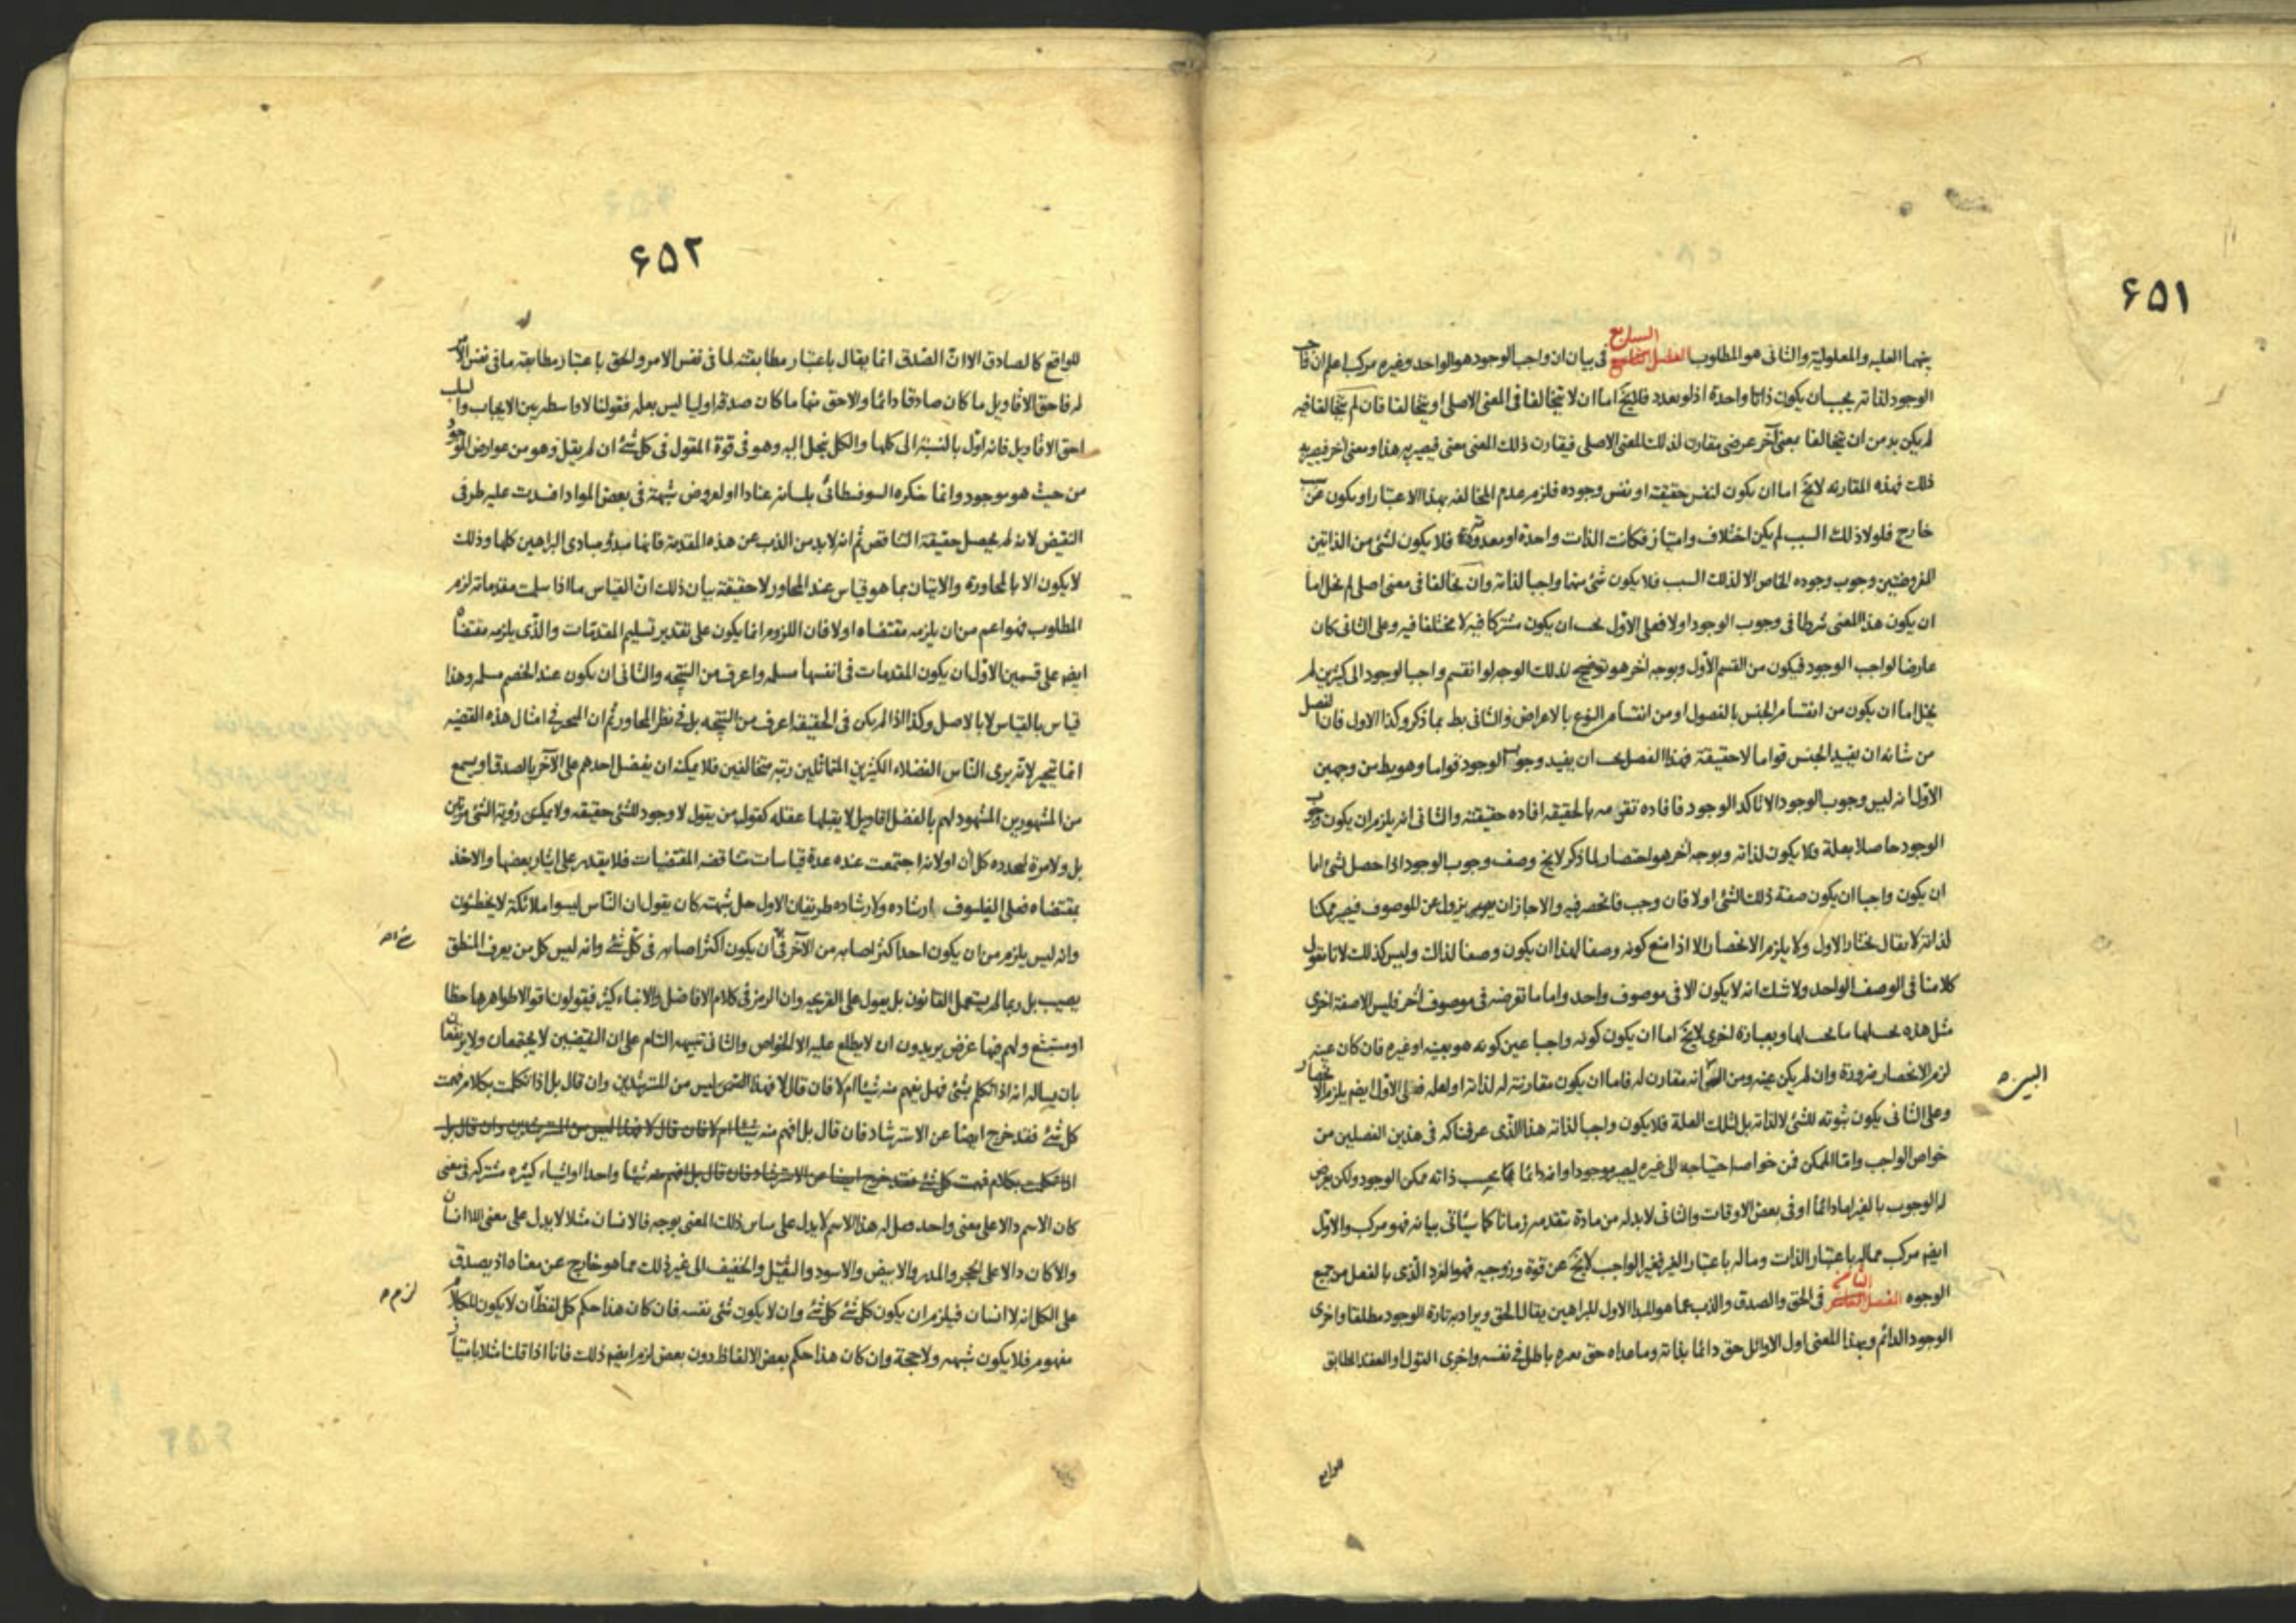 ۶۵۱
بينهما العليه والمعلولية والثانى هو المطلوب الفصل السابع فى بيان ان واجب الوجود هو الواحد وغيره مركب اعلم ان واجب
الوجود لذاته يجب ان يكون ذاتا واحدة اذ لو تعدد فلا يخ اما ان لا يتخالفا فى المعنى الاصلى او يتخالفا فان لم يتخالفا فيه
لم يكن بد من ان يتخالفا بمعنى آخر عرضى مقارن لذلك المعنى الاصلى فيقارن ذلك المعنى معنى فيصير به هذا ومعنى آخر فيصير به
ذلك فهذه المقارنه لا يخ اما ان يكون لنفس حقيقته او نفس وجوده فلزم عدم المخالفه بهذا الاعتبار او يكون عن سبب
خارج فلولا ذلك السبب لم يكن اختلاف وامتياز فكانت الذات واحدة او معدومة فلا يكون لشئ من الذاتين
المفروضتين وجوب وجوده الخاص الا لذلك السبب فلا يكون شئ منهما واجبا لذاته وان تخالفا فى معنى اصلى لم يخل اما
ان يكون هذا المعنى شرطا فى وجوب الوجود اولا فعلى الاول يجب ان يكون مشتركا فيه لا مختلفا فيه وعلى الثانى كان
عارضا لواجب الوجود فيكون من القسم الاول وبوجه آخر هو توضيح لذلك الوجه لو انقسم واجب الوجود الى كثيرين لم
يخل اما ان يكون من انقسام الجنس بالفصول او من انقسام النوع بالاعراض والثانى بط بما ذكر وكذا الاول فان الفصل
من شانه ان يفيد الجنس قواما لا حقيقة فهذا الفصل يجب ان يفيد وجوب الوجود قواما وهو بط من وجهين
الاول انه ليس وجوب الوجود الا تاكد الوجود فافاده تقومه بالحقيقه افاده حقيقته والثانى انه يلزم ان يكون وجوب
الوجود حاصلا بعلة فلا يكون لذاته وبوجه آخر هو اختصار لما ذكر لا يخ وصف وجوب الوجود اذا حصل لشئ اما
ان يكون واجبا ان يكون صفة ذلك الشئ اولا فان وجب فانحصر فيه والا جاز ان يزول عن الموصوف فيصير ممكنا
لذاته لا يقال نختار الاول ولا يلزم الانحصار الا اذا منع كونه وصفا لهذا ان يكون وصفا لذاك وليس كذلك لانا نقول
كلامنا فى الوصف الواحد ولا شك انه لا يكون الا فى موصوف واحد واما ما تفرضه فى موصوف آخر فليس الا صفة اخرى
مثل هذه يحسبها ما يحسبها وبعبارة اخرى لا يخ اما ان يكون كونه واجبا عين كونه هو بعينه او غيره فان كان عينه
لزم الانحصار ضرورة وان لم يكن عينه ومن البين انه مقارن له فاما ان يكون مقارنته له لذاته او لعله فعلى الاول ايضم يلزم الانحصار
وعلى الثانى يكون ثبوته للشئ لا لذاته بل لتلك العلة فلا يكون واجبا لذاته هذا الذى عرفناكه فى هذين الفصلين من
خواص الواجب واما الممكن فمن خواصه احتياجه الى غيره ليصير موجودا وانه دائما بحسب ذاته ممكن الوجود ولكن يعرض
له الوجوب بالغير اما دائما او فى بعض الاوقات والثانى لابد له من مادة تتقدمه زمانا كما سيأتى بيانه فهو مركب والاول
ايضم مركب مما له باعتبار الذات وما له باعتبار الغير فغير الواجب لا يخ عن قوة وزوجيه فهو الفرد الذى بالفعل من جميع
الوجوه الفصل الثامن فى الحق والصدق والذب عما هو المبدا الاول للبراهين يقال الحق ويراد به تارة الوجود مطلقا واخرى
الوجود الدائم وبهذا المعنى اول الاوائل حق دائما بذاته وما عداه حق به باطل فى نفسه واخرى القول او العقد المطابق
۶۵۲
للواقع كالصادق الا ان الصدق انما يقال باعتبار مطابقته لما فى نفس الامر والحق باعتبار مطابقه ما فى نفس الامر
له فاحق الاقاويل ما كان صادقا دائما والاحق منها ما كان صدقه اوليا ليس بعله فقولنا لا واسطه بين الايجاب والسلب
احق الاقاويل فانه اول بالنسبة الى كلها والكل ينحل اليه وهو فى قوة المقول فى كل شئ ان لم يقل وهو من عوارض الموجود
من حيث هو موجود وانما ينكره السوفسطائى بلسانه عنادا او لعروض شبهة فى بعض المواد افسدت عليه طرفى
النقيض لانه لم يحصل حقيقة التناقض ثم انه لابد من الذب عن هذه المقدمة فانها مبدؤ مبادى البراهين كلها وذلك
لا يكون الا بالمحاورة والاتيان بما هو قياس عند المحاور لا حقيقة بيان ذلك ان القياس ما اذا سلمت مقدماته لزم
المطلوب فهو اعم من ان يلزمه مقتضاه اولا فان اللزوم انما يكون على تقدير تسليم المقدمات والذى يلزمه مقتضاه
ايضم على قسمين الاول ان يكون المقدمات فى انفسها مسلمه واعرف من النتيجه والثانى ان يكون عند الخصم مسلمه وهذا
قياس بالقياس لا بالاصل وكذا اذا لم يكن فى الحقيقه اعرف من النتيجه بل فى نظر المحاور ثم ان المتحير فى امثال هذه القضيه
انما يتحير لانه يرى الناس الفضلاء الكثيرين المتماثلين رتبه متخالفين فلا يمكنه ان يفضل احدهم على الآخر بالصدق او يسمع
من المشهورين المشهود لهم بالفضل اقاويل لا يقبلها عقله كقول من يقول لا وجود للشئ حقيقه ولا يمكن رؤية الشئ مرتين
بل ولا مرة لتجدده كل آن او لانه اجتمعت عنده عدة قياسات متناقضه المقتضيات فلا يقدر على ايثار بعضها والاخذ
بمقتضاه فعلى الفيلسوف ارشاده ولارشاده طريقان الاول حل شبهته كان يقول ان الناس ليسوا ملائكة لا يخطئون
وانه ليس يلزم من ان يكون احد اكثر اصابه من الآخر فى شئ ان يكون اكثر اصابه فى كل شئ وانه ليس كل من يعرف المنطق
يصيب بل ربما لم يستعمل القانون بل يعول على القريحه وان الرمز فى كلام الافاضل والانبياء كثير فيقولون اقوالا ظواهرها خطا
او مستشنع ولهم فيها غرض يريدون ان لا يطلع عليه الا الخواص والثانى تنبيهه التام على ان النقيضين لا يجتمعان ولا يرتفعان
بان يساله انه اذا تكلم بشئ فهل يفهم منه شيئا ام لا فان قال لا فهذا الشخص ليس من المسترشدين وان قال بل اذا تكلمت بكلام فهمت
كل شئ فقد خرج ايضا عن الاسترشاد فان قال بل افهم منه شيئا ام لا فان قال لا فهذا ليس من المسترشدين وان قال بل
اذا تكلمت بكلام فهمت كل شئ فقد خرج ايضا عن الاسترشاد فان قال بل افهم منه شيئا واحدا او اشياء كثيره مشتركه فى معنى
كان الاسم دالا على معنى واحد حصل له هذا الاسم لا يدل على مباين ذلك المعنى بوجه فالانسان مثلا لا يدل على معنى اللاانسان
والا كان دالا على الحجر والمدر والابيض والاسود والثقيل والخفيف الى غير ذلك مما هو خارج عن معناه اذ يصدق
على الكل انه لا انسان فيلزم ان يكون كل شئ كل شئ وان لا يكون شئ نفسه فان كان هذا حكم كل لفظ لزم ان لا يكون للكلام
مفهوم فلا يكون شبهه ولا حجة وان كان هذا حكم بعض الالفاظ دون بعض لزم ايضم ذلك فانا اذا قلنا مثلا بامتياز